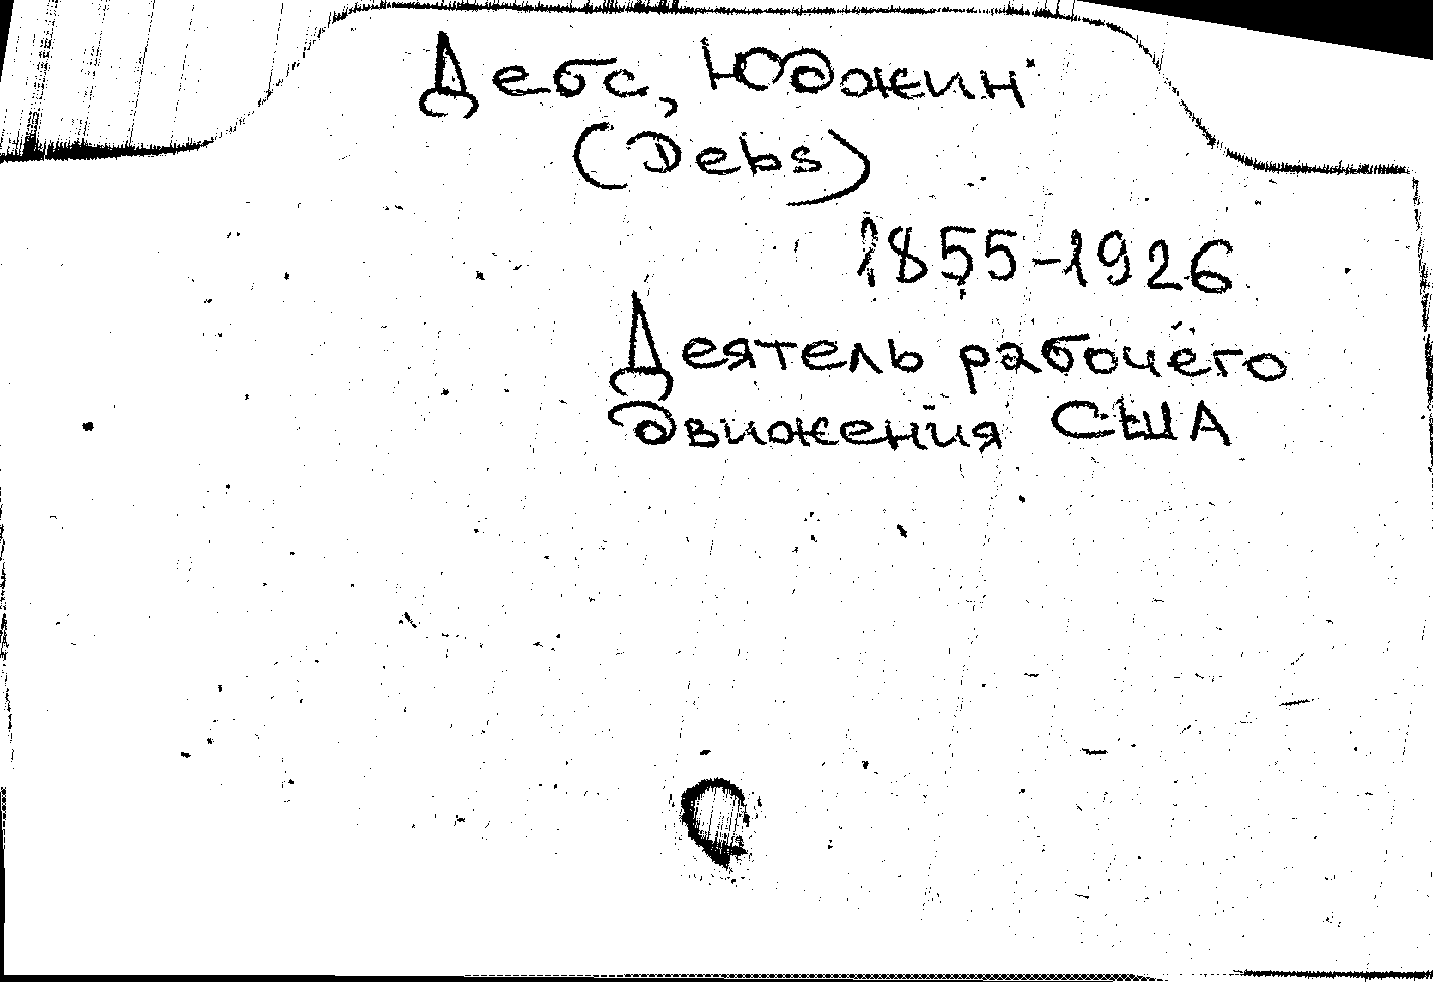 Дебс, Юджин
(Debs)
1855-1926
Деятель рабочего
движения США